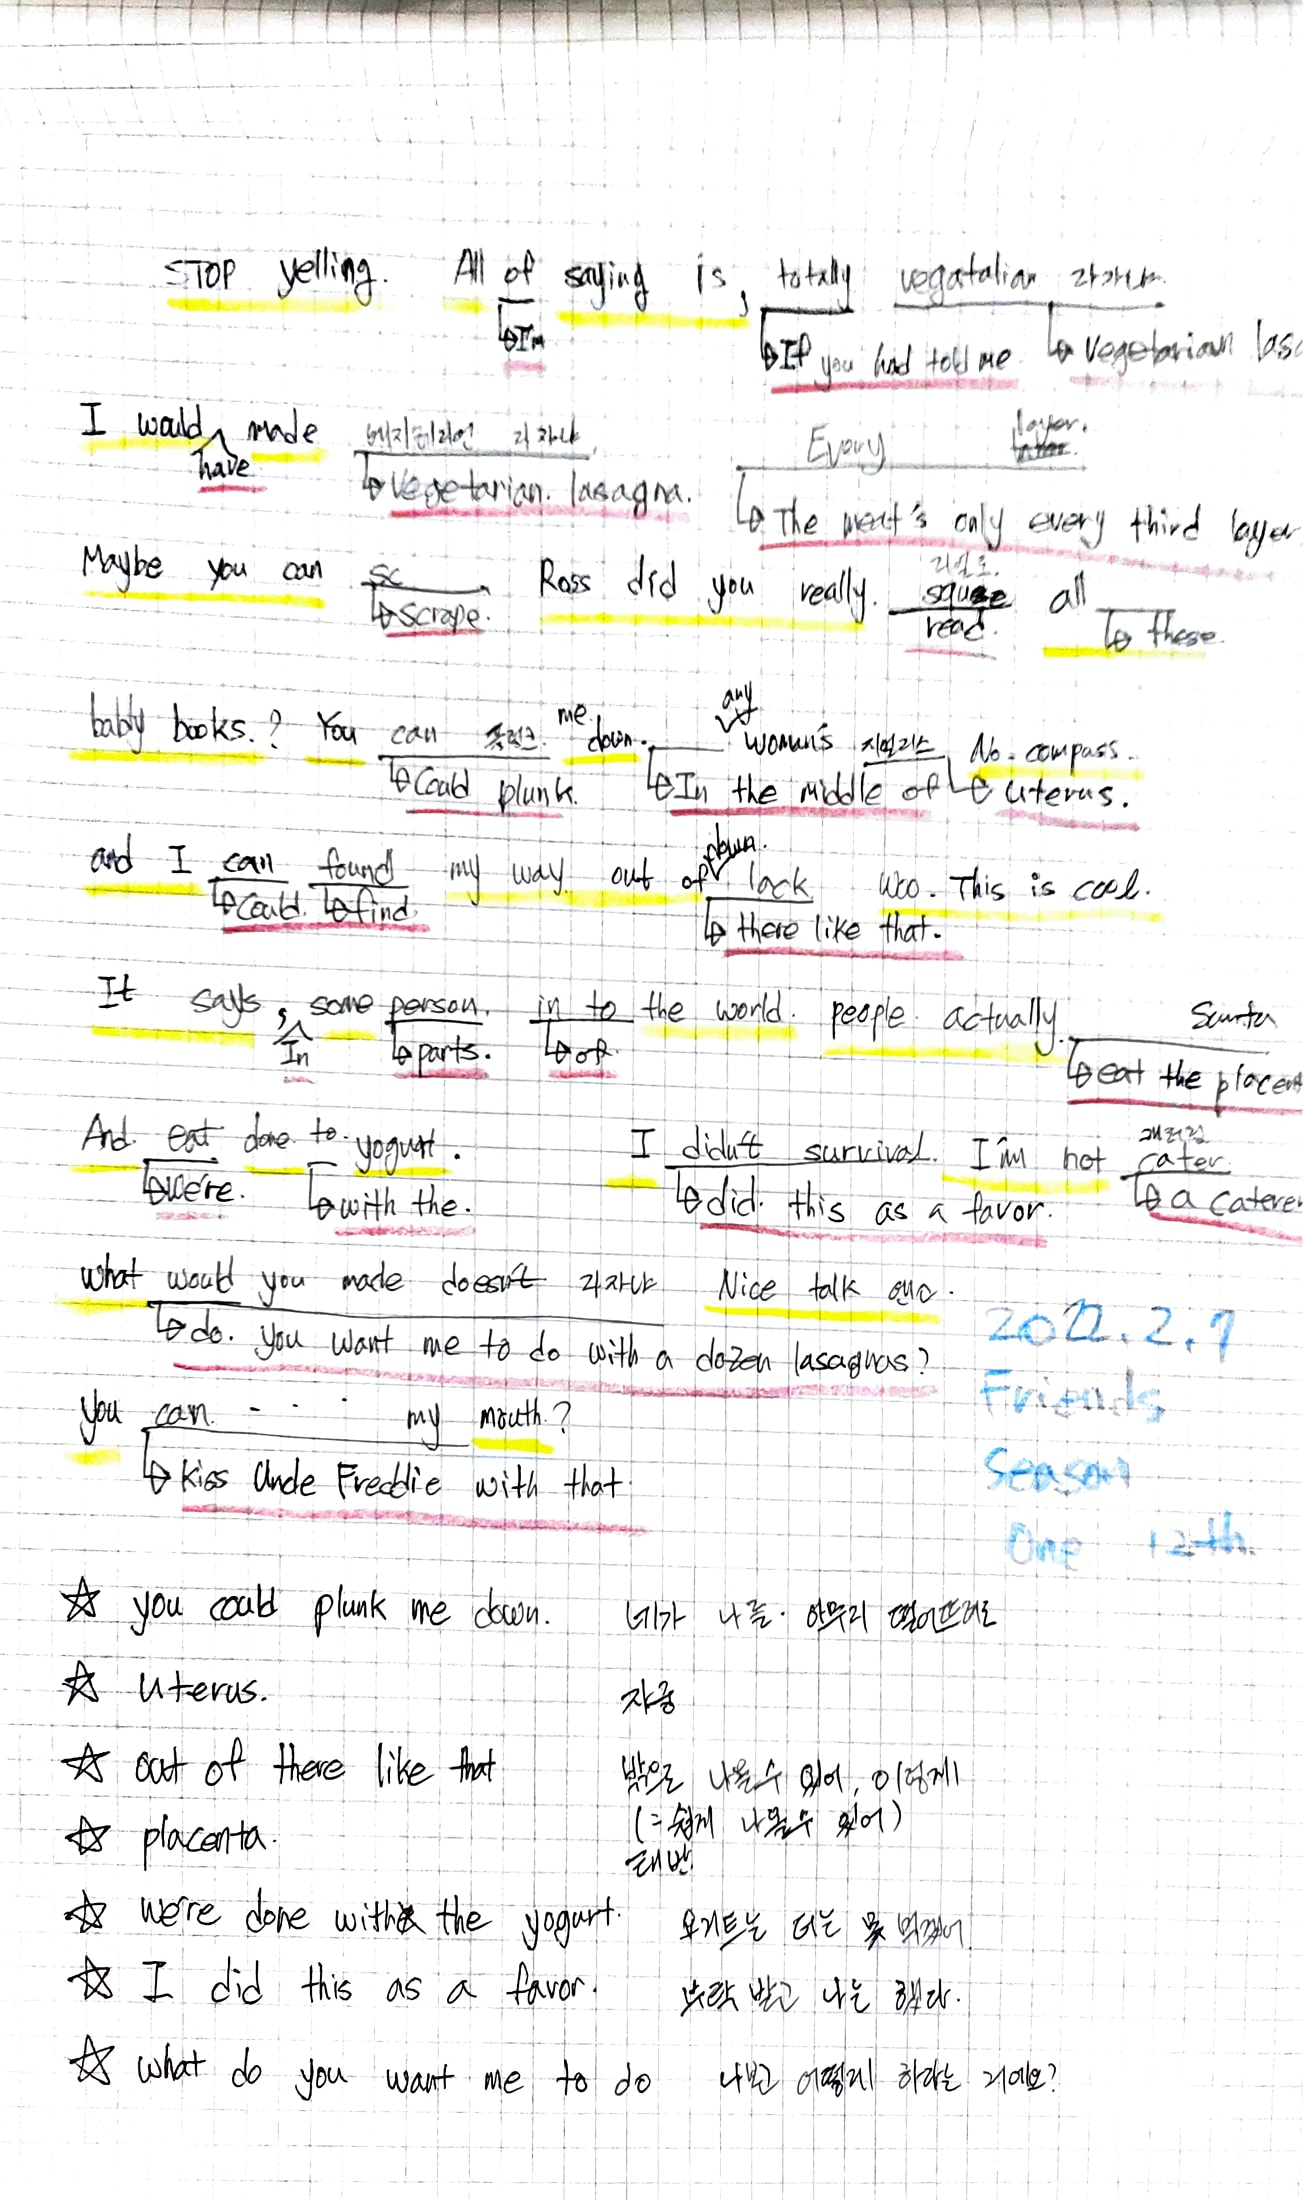 STOP yelling. All of saying is, totally vegatalian 라자냐.
I'm If you had told me vegetarian las
I would made 베지테리언 라자냐, Every layer.
have vegetarian. lasagna. The meat's only every third layer
Maybe you can sc Ross did you really. 리얼로. square all
scrape. read. these.
baby books.? You can 플럭크. me down. any woman's 지얼리스 No. compass.
could plunk. In the middle of uterus.
and I can found my way out of down. lack Woo. This is cool.
could. find. there like that.
It says, some person. in to the world. people actually. Santa
In parts. of. eat the placent
And. eat. done to. yogurt. I didn't survival. I'm not 캐터링 cater.
we're. with the. did. this as a favor. a caterer
what would you made doesn't 라자냐 Nice talk 앤. 
do. you want me to do with a dozen lasagnas?
2022.2.9
Friends
Season
One 12th.
you can. - - · my mouth.?
Kiss Uncle Freddie with that
☆ you could plunk me down. 네가 나를. 아무리 떨어뜨려도
☆ uterus. 자궁
☆ out of there like that 밖으로 나올수 있어, 이렇게
(=쉽게 나올수 있어)
☆ placenta. 태반
☆ we're done with the yogurt. 요거트는 더는 못 먹겠어
☆ I did this as a favor. 부탁 받고 나는 했다.
☆ what do you want me to do 나보고 어떻게 하라는 거에요?